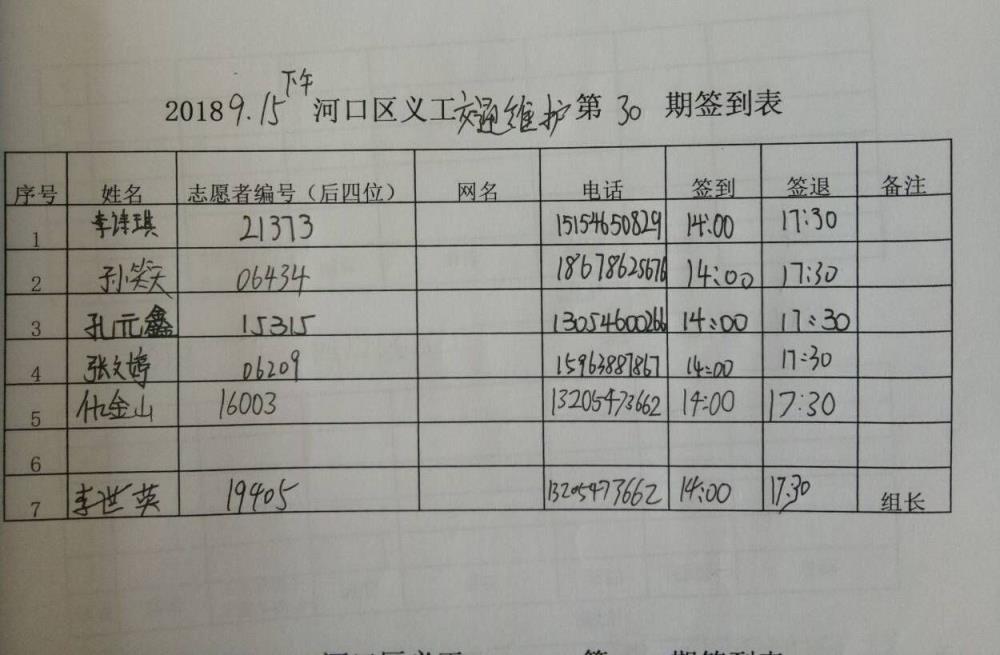 下午
2018 9.15 河口区义工交通维护第 30 期签到表
序号 姓名 志愿者编号（后四位） 网名 电话 签到 签退 备注
1 李诗琪 21373 15154650829 14:00 17:30
2 孙笑天 06434 18678625676 14:00 17:30
3 孔元鑫 15315 13054600266 14:00 17:30
4 张文婷 06209 15963887867 14:00 17:30
5 仇金山 16003 13205473662 14:00 17:30
6
7 李世英 19405 13205473662 14:00 17:30 组长
河口区义工 第 期签到表